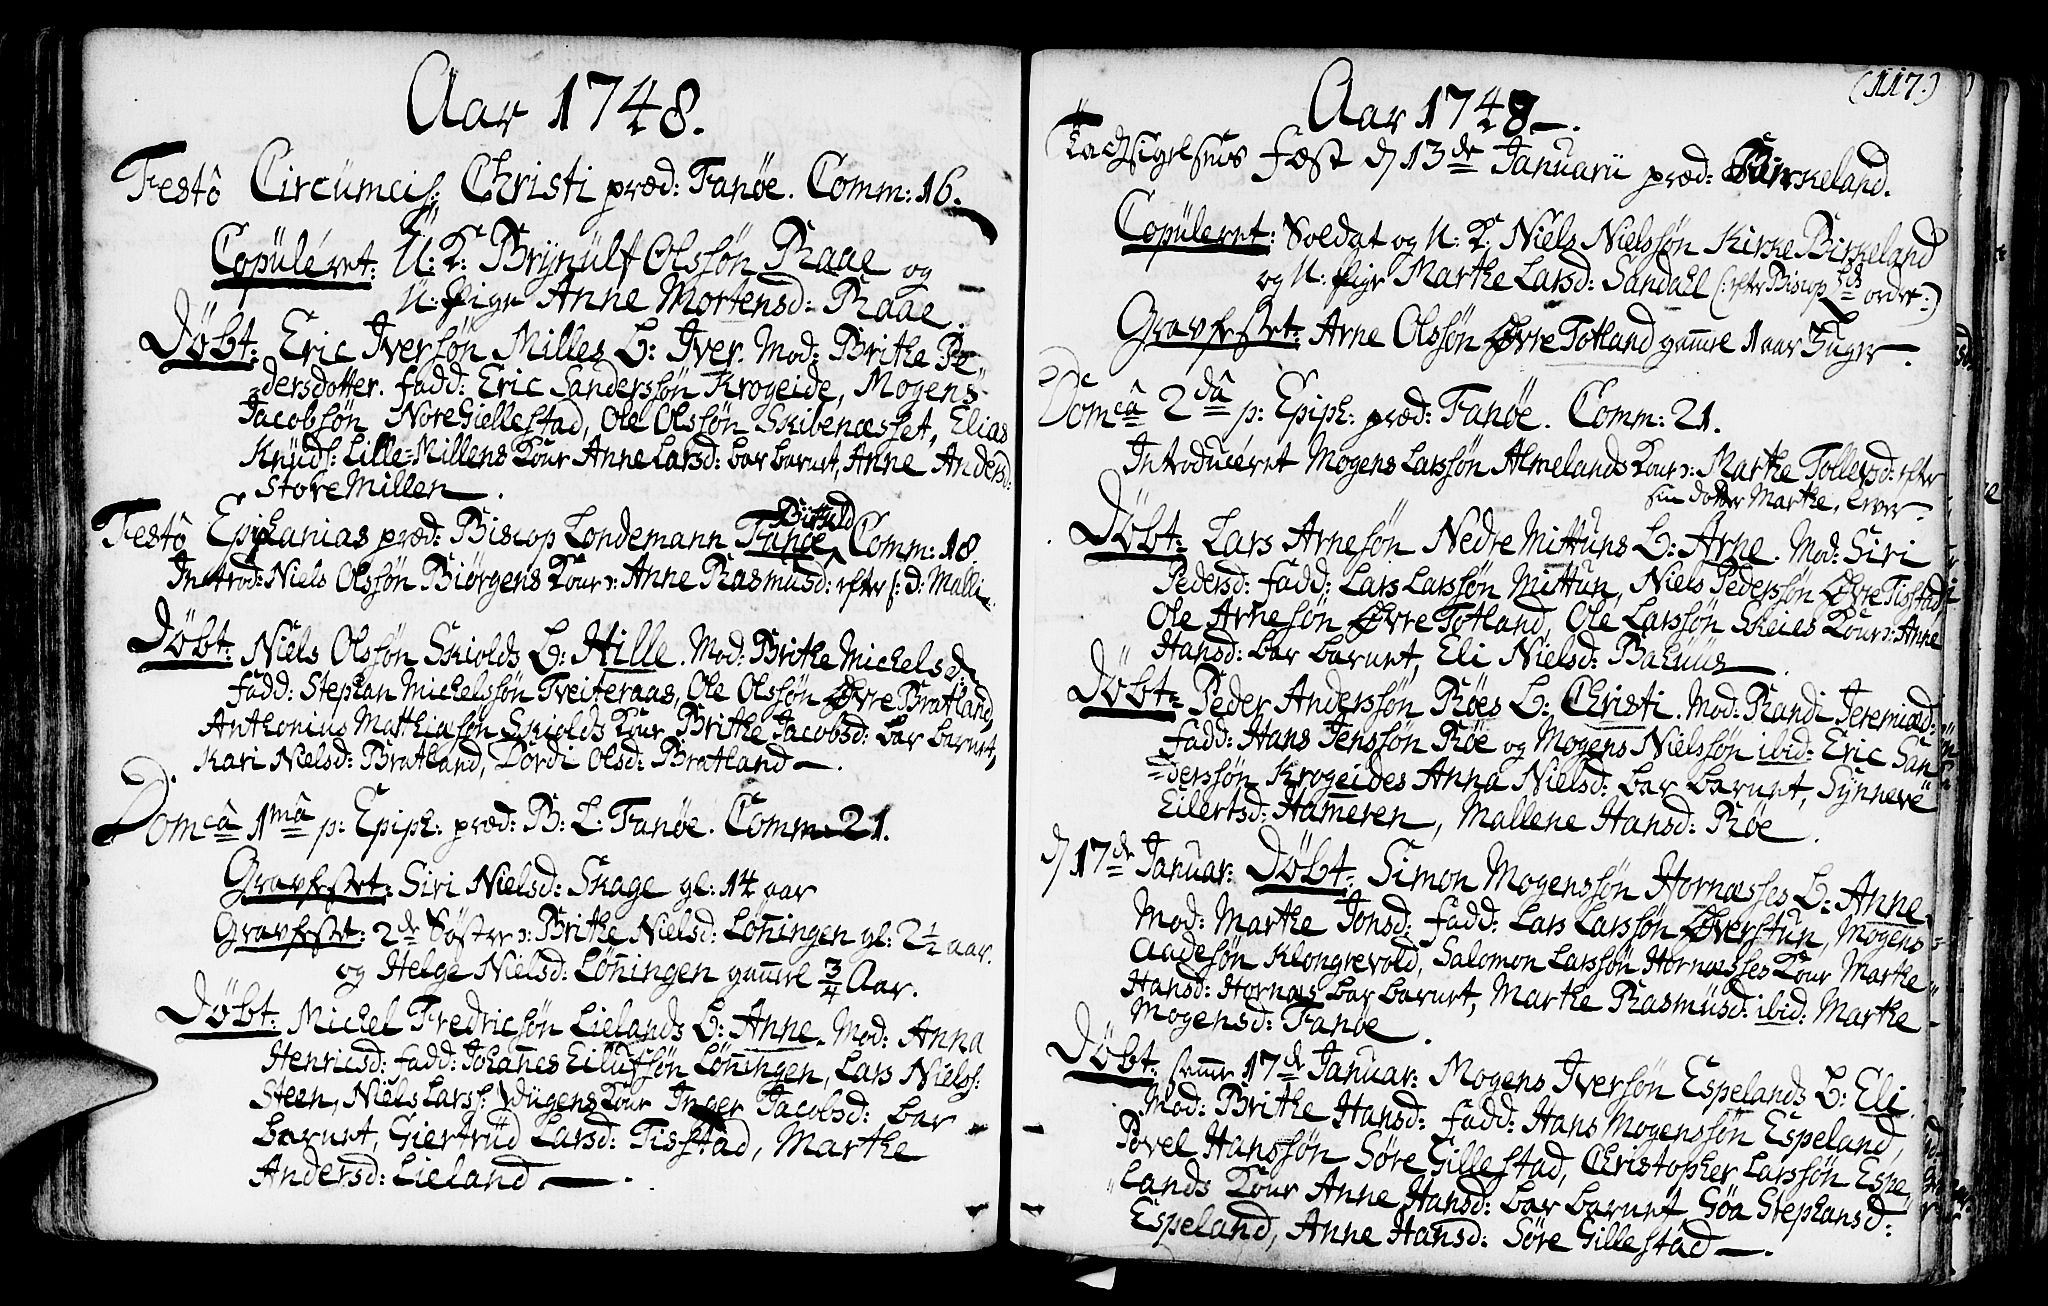 Aar 1748.
Festô Circumcis: Christi præd: Fanöe. Comm: 16.
Copuléret: U: K: Brynulf Olssön Raae og
U: Pige Anne Mortensd: Raae.
Döbt: Eric Iversön Milles b: Iver. Mod: Brithe Pe=
=dersdotter. fadd: Eric Sanderssön Krogeide, Mogens
Jacobsön Nore Giellestad, Ole Olssön Skibenesset, Elias
Knuds: Lille=Millens Kone Anne Larsd: bar barnet, Anne Andersd:
Store Millen.
Festô Epiphanias præd: Biscop Londemann Fanöe Birkeld Comm: 18
Introd: Niels Olssön Biörgens Kone: Anne Rasmusd: efter s: d: Malli
Döbt: Niels Olssön Skiolds b: Hille. Mod: Brithe Michelsd:
fadd: Stephan Michelssön Tveiteraas, Ole Olssön Øvre Bratland,
Anthonius Mathiasön Skiolds Kone Brithe Jacobsd: bar barnet,
Kari Nielsd: Bratland, Dordi Olsd: Bratland.
Domcâ 1mâ p: Epiph: præd: B: L: Fanöe. Comm: 21.
Gravfestet: Siri Nielsd: Skage gl: 14 aar
Gravfestet: 2de Söstre: Brithe Nielsd: Löningen gl: 2 1/2 aar.
og Helge Nielsd: Löningen gamle 3/4 Aar.
Döbt: Michel Fredricsön Lielands b: Anne. Mod: Anna
Henricsd: fadd: Johanes Eilufsön Löningen, Lars Niels:
Steen, Niels Larss: Kone Inger Jacobsd: bar
barnet, Giertrud Larsd: Tisstad, Marthe
Andersd: Lieland.
(117.)
Aar 1748.
Tachsigelsens fest d 13de Januarii præd: Birkeland.
Copuleret: Soldat og U: K: Niels Nielssön Kirke Birkeland
og U: Pige Marthe Larsd: Sandahl (: efter Biscop ordre:)
Gravfestet: Arne Olssön Øvre Totland gamle 1 aar 3 uger.
Domcâ 2dâ p: Epiph: præd: Fanöe. Comm: 21.
Introduceret Mogens Larssön Almelands Kone: Marthe Tollevsd: efter
sin dotter Marthe, lever.
Döbt: Lars Arnesön Nedre Mittuns b: Arne. Mod: Siri
Pedersd: fadd: Lars Larssön Mittun, Niels Pederssön Øvre Tisstad,
Ole Arnesön Øvre Totland, Ole Larssön Skeies Kone: Anne
Hansd: bar barnet, Eli Nielsd: Bahuus
Döbt: Peder Anderssön Röes b: Christi. Mod: Randi Jeremiæd:
fadd: Hans Jenssön Röe og Mogens Nielssön ibid: Eric San=
=derssön Krogeides Anna Nielsd: bar barnet, Synneve
Eilertsd: Hameren, Mallene Hansd: Röe.
d 17de Januar: Döbt: Simon Mogenssön Hornæsses b: Anne.
Mod: Marthe Jonsd: fadd: Lars Larssön Øverstun, Mogens=
Aadesön Klongrevold, Salomon Larssön Hornæsses Kone Marthe
Hansd: Hornæs bar barnet, Marthe Rasmusd: ibid: Marthe
Mogensd: Fanöe.
Döbt: samme 17de Januar: Mogens Iversön Espelands b: Eli.
Mod: Brithe Hansd: fadd: Hans Mogenssön Espeland,
Povel Hanssön Söre Gillestad, Christopher Larssön Espe=
lands Kone Anne Hansd: bar barnet Göa Stephansd:
Espeland, Anne Hansd: Söre Gillestad.